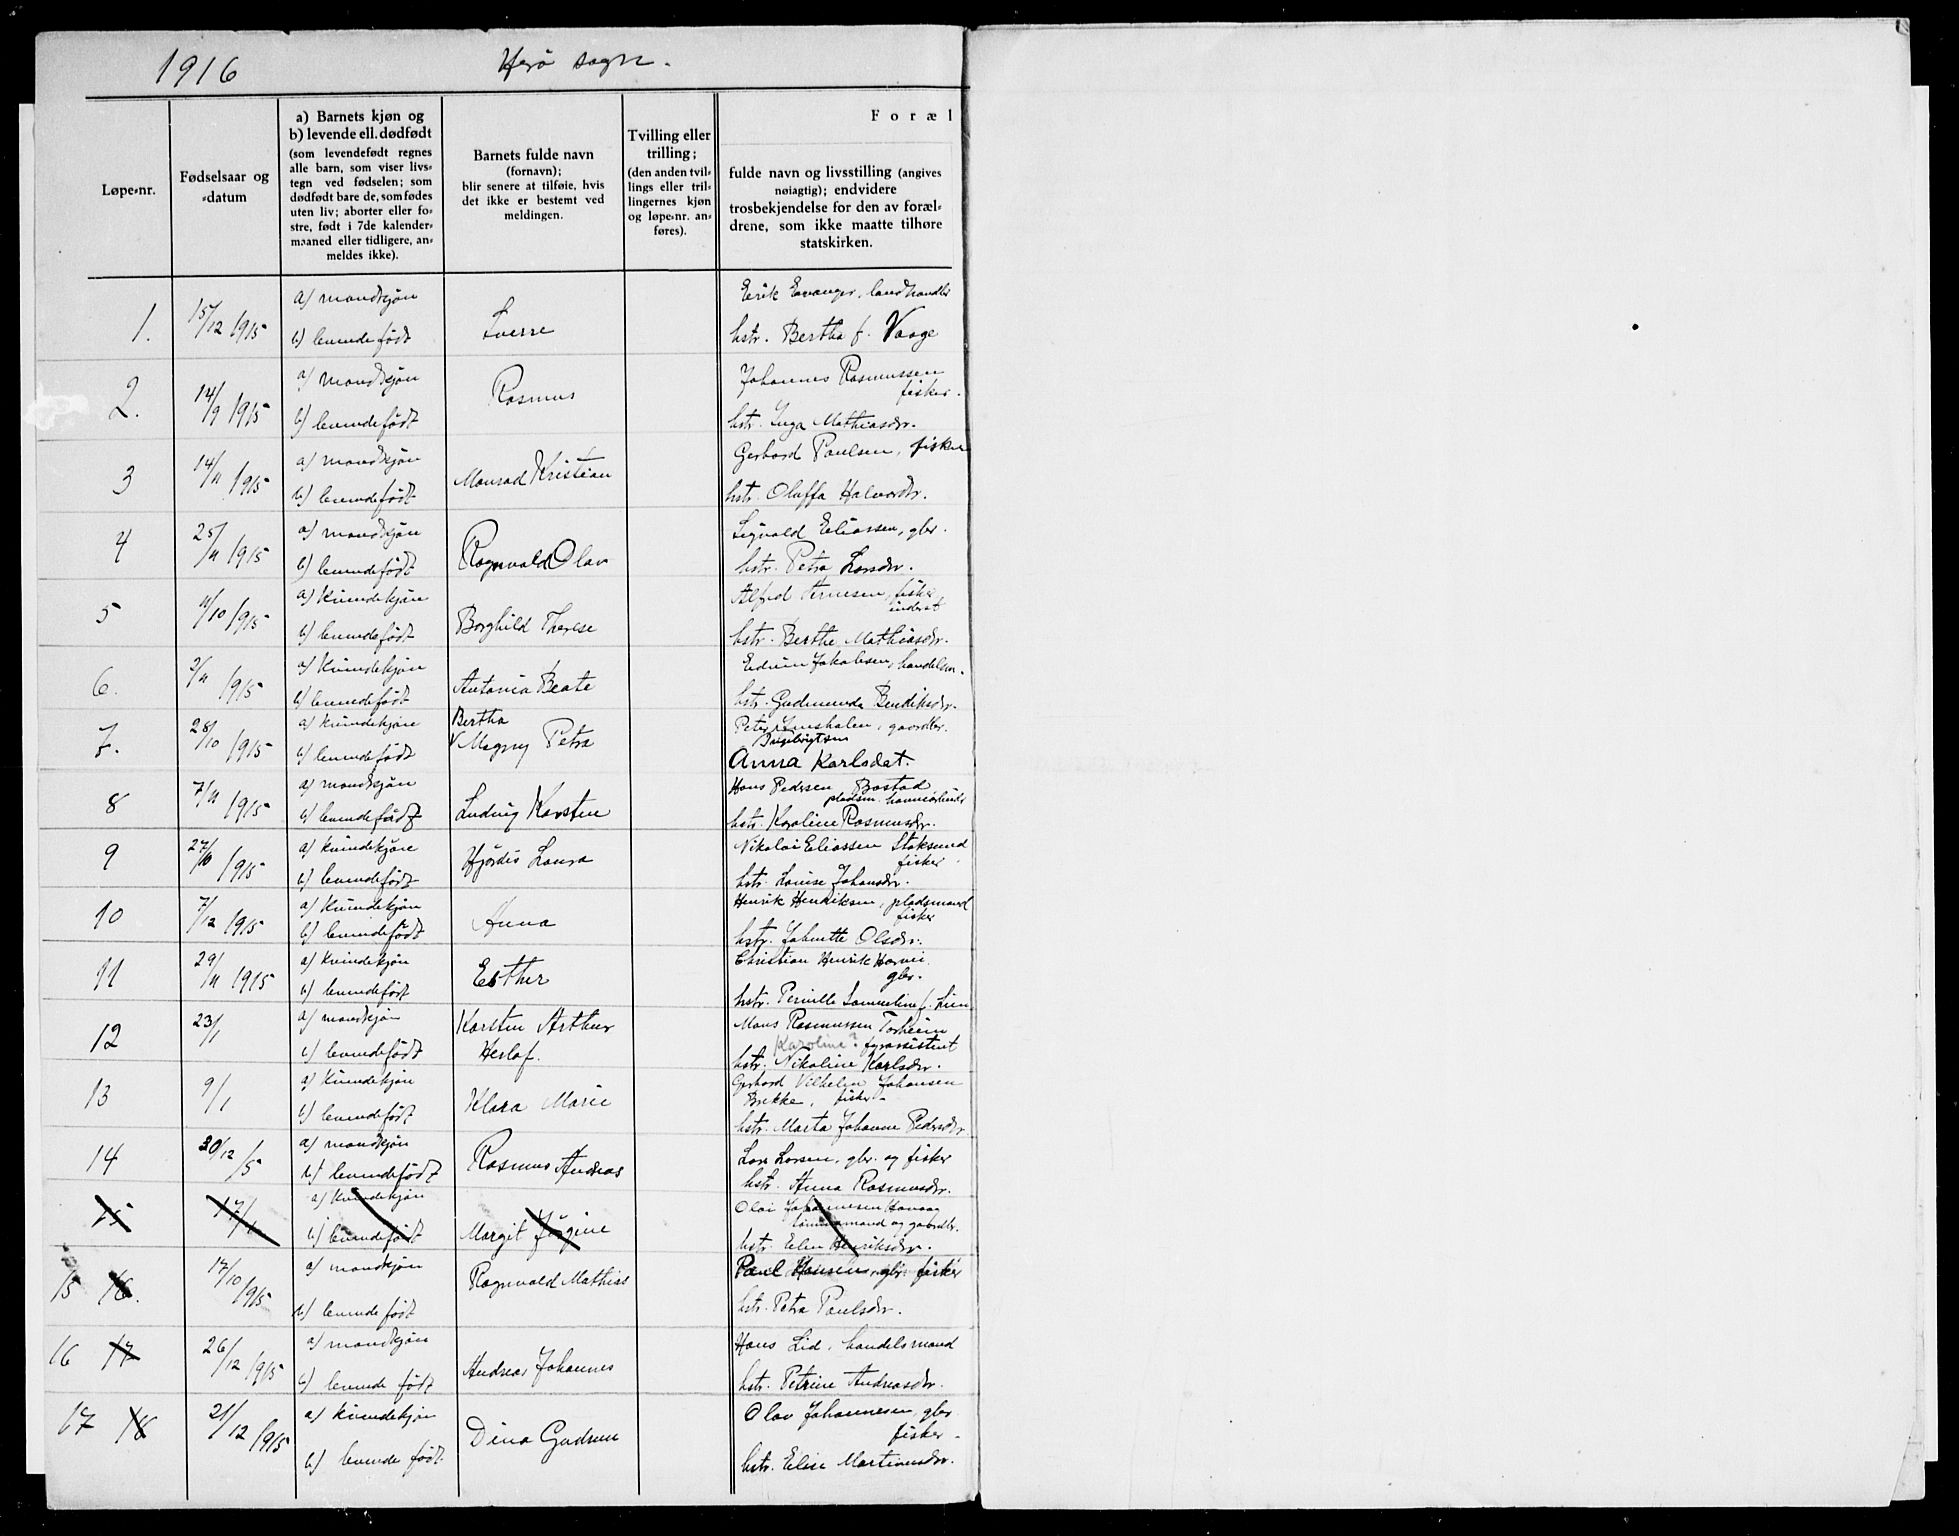 1916 Herö sogn.
Løpe-nr.
Fødselsaar og
-datum
a) Barnets kjøn og
b) levende ell. dødfødt
(som levendefødt regnes
alle barn, som viser livs-
tegn ved fødselen; som
dødfødt bare de, som fødes
uten liv; aborter eller fo-
stre, født i 7de kalender-
maaned eller tidligere, an-
meldes ikke).
Barnets fulde navn
(fornavn);
blir senere at tilføie, hvis
det ikke er bestemt ved
meldingen.
Tvilling eller
trilling;
(den anden tvil-
lings eller tril-
lingernes kjøn
og løpe-nr. an-
føres).
Foræl
fulde navn og livsstilling (angives
nøiagtig); endvidere
trosbekjendelse for den av foræl-
drene, som ikke maatte tilhøre
statskirken.
1. 15/12 1915 a) mandkjøn Sverre Eirik Evanger, landhandler
b) levende født hstr. Bertha f. Vaage
2. 14/9 1915 a) mandkjøn Rasmus Johannes Rasmussen
fisker.
b) levendefødt hstr. Inga Mathiasdr.
3 14/11 1915 a) mandkjøn Monrad Kristian Gerhard Paulsen, fisker
b) levendefødt hstr. Oluffa Halvordr.
4 25/11 1915 a) mandkjøn Ragnvald Olav Sigvald Eliassen, gbr.
b) levendefødt hstr. Petra Larsdr.
5 11/10 1915 a) kvindekjøn Borghild Therese Alfred Arnesen, fisker
inderst
b) levendefødt hstr. Berthe Mathiasdr.
6. 2/11 1915 a) kvindekjøn Antonia Beate Edvin Jakobsen, handelsm.
b) levendefødt hstr. Gudmunda Bendiksdr.
7. 28/10 1915 a) kvindekjøn Bertha
Magny Petra Peter, gaardbr.
b) levendefødt Anna Karlsdat.
8 7/11 1915 a) mandkjøn Ludvig Karsten Hans Pedersen Bostad
pladsm.
b) levendefødt hstr. Karoline Rasmusdr.
9 27/10 1915 a) kvindekjøn Hjørdis Laura Nikolai Eliassen Stoksund
fisker
b) levendefødt hstr. Louise Johansdr.
10 7/12 1915 a) kvindekjøn Anna Henrik Henriksen, pladsmand
fisker
b) levendefødt hstr. Jahnette Olsdr.
11 29/11 1915 a) kvindekjøn Esther Christian Henrik
gbr.
b) levendefødt hstr. Pernille f. Lien
12 23/1 a) mandkjøn Karsten Arthur
Herlof. Mons Rasmussen Torheim
Karoline? fyrassistent
b) levendefødt hstr. Nikoline Karlsdr.
13 9/1 a) kvindekjøn Klara Marie Gerhard Vilhelm Johansen
Brekke, fisker
b) levendefødt hstr. Marta Johanne Pedersdr.
14 30/12 15 a) mandkjøn Rasmus Andreas Lars Larsen, gbr. og fisker
b) levendefødt hstr. Anna Rasmusdr.
15 17/1 a) kvindekjøn Margit Jørgine Olai Johannesen
tømmermand og gaardbr.
b) levendefødt hstr. Elen Henriksdr.
15 16. 17/10 1915 a) mandkjøn Ragnvald Mathias Paul Hansen, gbr. fisker
b) levende født hstr. Petra Paulsdr.
16 17 26/12 1915 a) mandkjøn Andreas Johannes Hans Lid, handelsmand
b) levende født hstr. Petrine Andreasdr.
17 18 21/12 1915 a) kvindekjøn Dina Gudrun Olav Johannesen, gbr.
fisker
b) levende født hstr. Elise Martinusdr.